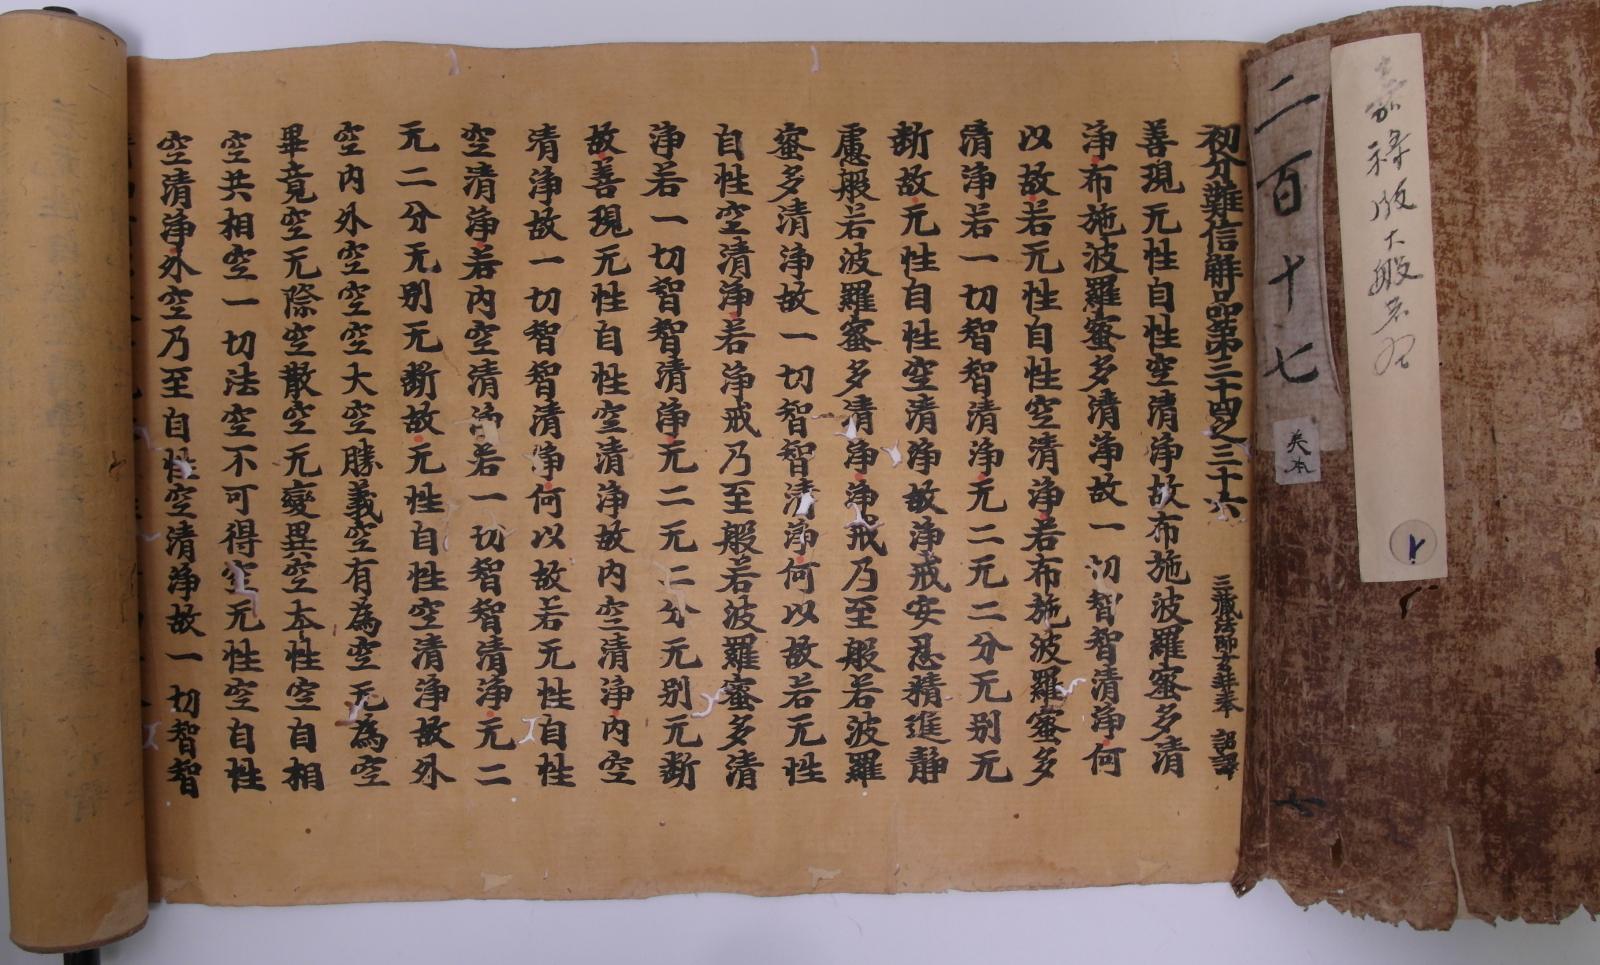 嘉禄版大般若经
二百十七
初分難信解品第三十四之三十六
三藏法師玄奘奉 詔譯
善現无性自性空清淨故布施波羅蜜多清
淨布施波羅蜜多清淨故一切智智清淨何
以故若无性自性空清淨若布施波羅蜜多
清淨若一切智智清淨无二无二分无别无
断故无性自性空清淨故淨戒安忍精進靜
慮般若波羅蜜多清淨淨戒乃至般若波羅
蜜多清淨故一切智智清淨何以故若无性
自性空清淨若淨戒乃至般若波羅蜜多清
淨若一切智智清淨无二无二分无别无断
故善現无性自性空清淨故内空清淨内空
清淨故一切智智清淨何以故若无性自性
空清淨若内空清淨若一切智智清淨无二
无二分无别无断故无性自性空清淨故外
空内外空空空大空勝義空有為空无為空
畢竟空无際空散空无變異空本性空自相
空共相空一切法空不可得空无性空自性
空清淨外空乃至自性空清淨故一切智智
七